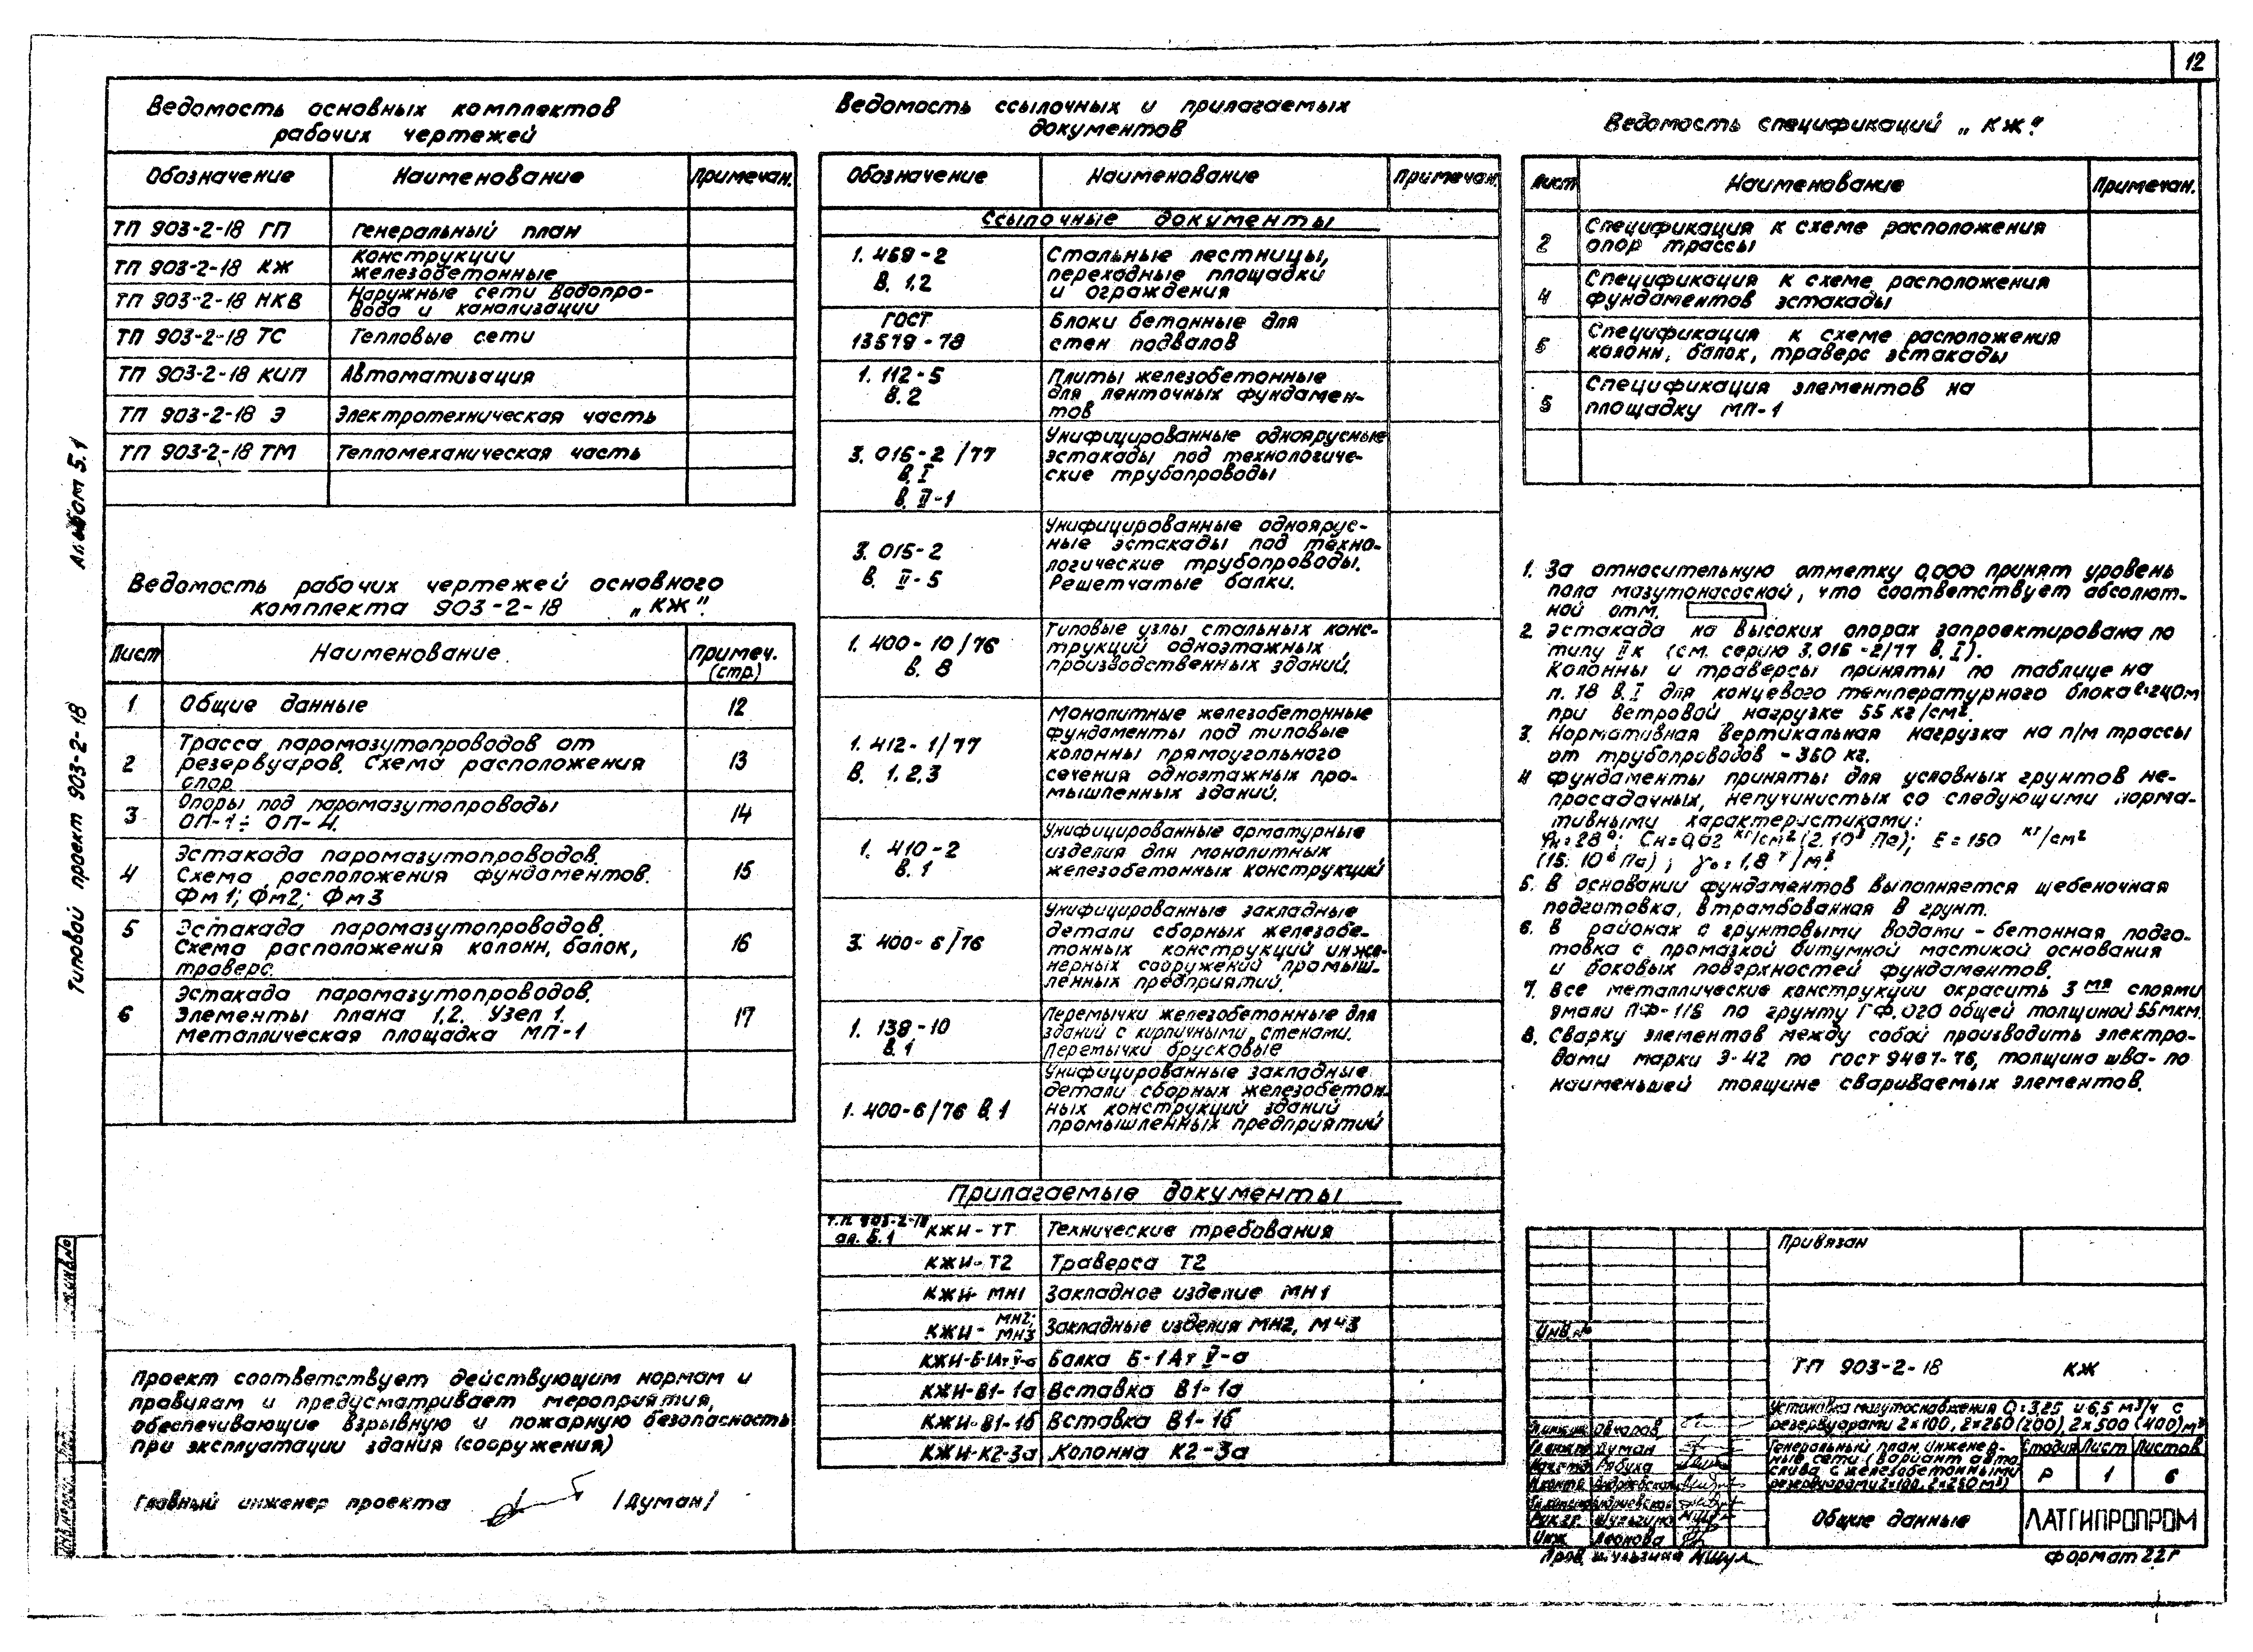 12
Ведомость основных комплектов
рабочих чертежей
Обозначение Наименование Примечан.
ТП 903-2-18 ГП Генеральный план
ТП 903-2-18 КЖ Конструкции
железобетонные
ТП 903-2-18 НКВ Наружные сети водопро-
вода и канализации
ТП 903-2-18 ТС Тепловые сети
ТП 903-2-18 КИП Автоматизация
ТП 903-2-18 Э Электротехническая часть
ТП 903-2-18 ТМ Тепломеханическая часть
Альбом 5.1
Типовой проект 903-2-18
Ведомость рабочих чертежей основного
комплекта 903-2-18 „КЖ".
Лист Наименование Примеч.
(стр.)
1 Общие данные 12
2 Трасса паромазутопроводов от
резервуаров. Схема расположения
опор 13
3 Опоры под паромазутопроводы
ОП-1÷ОП-4. 14
4 Эстакада паромазутопроводов.
Схема расположения фундаментов.
Фм1; Фм2; Фм3 15
5 Эстакада паромазутопроводов.
Схема расположения колонн, балок,
траверс. 16
6 Эстакада паромазутопроводов.
Элементы плана 1,2. Узел 1.
Металлическая площадка МП-1 17
Проект соответствует действующим нормам и
правилам и предусматривает мероприятия,
обеспечивающие взрывную и пожарную безопасность
при эксплуатации здания (сооружения)
Главный инженер проекта /Думан/
Ведомость ссылочных и прилагаемых
документов
Обозначение Наименование Примечан.
Ссылочные документы
1.459-2
В. 1,2
Стальные лестницы,
переходные площадки
и ограждения
ГОСТ
13579-78
Блоки бетонные для
стен подвалов
1.112-5
В.2
Плиты железобетонные
для ленточных фундамен-
тов
3.015-2/77
В. I
В. II-1
Унифицированные одноярусные
эстакады под технологиче-
ские трубопроводы
3.015-2
В. II-5
Унифицированные одноярус-
ные эстакады под техно-
логические трубопроводы.
Решетчатые балки.
1.400-10/76
В. 8
Типовые узлы стальных конс-
трукций одноэтажных
производственных зданий.
1.412-1/77
В. 1,2,3
Монолитные железобетонные
фундаменты под типовые
колонны прямоугольного
сечения одноэтажных про-
мышленных зданий.
1.410-2
В.1
Унифицированные арматурные
изделия для монолитных
железобетонных конструкций
3.400-6/76
Унифицированные закладные
детали сборных железобе-
тонных конструкций инже-
нерных сооружений промыш-
ленных предприятий.
1.138-10
В.1
Перемычки железобетонные для
зданий с кирпичными стенами.
Перемычки брусковые
1.400-6/76 В.1
Унифицированные закладные
детали сборных железобетон-
ных конструкций зданий
промышленных предприятий
Прилагаемые документы
Т.П. 903-2-18
ал. 5.1 КЖИ-ТТ Технические требования
КЖИ-Т2 Траверса Т2
КЖИ-МН1 Закладное изделие МН1
КЖИ-МН2;
МН3 Закладные изделия МН2, МН3
КЖИ-Б-1Ат V-а Балка Б-1Ат V-а
КЖИ-В1-1а Вставка В1-1а
КЖИ-В1-1б Вставка В1-1б
КЖИ-К2-3а Колонна К2-3а
Ведомость спецификаций „КЖ".
Лист Наименование Примечан.
2 Спецификация к схеме расположения
опор трассы
4 Спецификация к схеме расположения
фундаментов эстакады
5 Спецификация к схеме расположения
колонн, балок, траверс эстакады
5 Спецификация элементов на
площадку МП-1
1. За относительную отметку 0,000 принят уровень
пола мазутонасосной, что соответствует абсолют-
ной отм.
2. Эстакада на высоких опорах запроектирована по
типу IIк (см. серию 3.015-2/77 В. I).
Колонны и траверсы приняты по таблице на
п. 18 В. I для концевого температурного блока ℓ=240м
при ветровой нагрузке 55 кг/см².
3. Нормативная вертикальная нагрузка на п/м трассы
от трубопроводов - 350 кг.
4 Фундаменты приняты для условных грунтов не-
просадочных, непучинистых со следующими норма-
тивными характеристиками:
φн=28°; Cн=0,02 кг/см² (2.10³ Па); E=150 кг/см²
(15.10⁶ Па); γ₀=1,8 т/м³.
5. В основании фундаментов выполняется щебеночная
подготовка, втрамбованная в грунт.
6. В районах с грунтовыми водами - бетонная подго-
товка с промазкой битумной мастикой основания
и боковых поверхностей фундаментов.
7. Все металлические конструкции окрасить 3мя слоями
эмали ПФ-115 по грунту ГФ.020 общей толщиной 55мкм.
8. Сварку элементов между собой производить электро-
дами марки Э-42 по гост 9467-76, толщина шва - по
наименьшей толщине свариваемых элементов.
Привязан
Инв.№
ТП 903-2-18 КЖ
Установка мазутоснабжения Q=3,25 и 6,5 м³/ч с
резервуарами 2×100, 2×250 (200), 2×500 (400) м³
Генеральный план, инженер-
ные сети (вариант авто
слива с железобетонными
резервуарами 2×100, 2×250 м³)
Стадия Лист Листов
Р 1 6
Овчаров
Думан
Рябуха
Рук.гр. Шульгина
Инж Леонова
Общие данные
ЛАТГИПРОПРОМ
Пров. Шульгина
Формат 22г